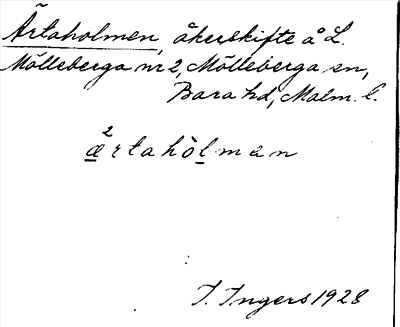 Ärtaholmen, åkerskifte å L.
Mölleberga nr 2, Mölleberga sn,
Bara hd, Malm. l.
2
æ̲rtahòl̲man
I. Ingers 1928